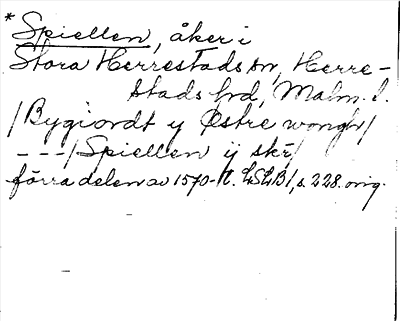 * Spiellen, åker i
Stora Herrestads sn, Herre-
stads hd, Malm. l.
/Bygiordt y Østre wongh/
---/Spiellen ij skr/
förra delen av 1570-t. LSLB1, s. 228. orig.